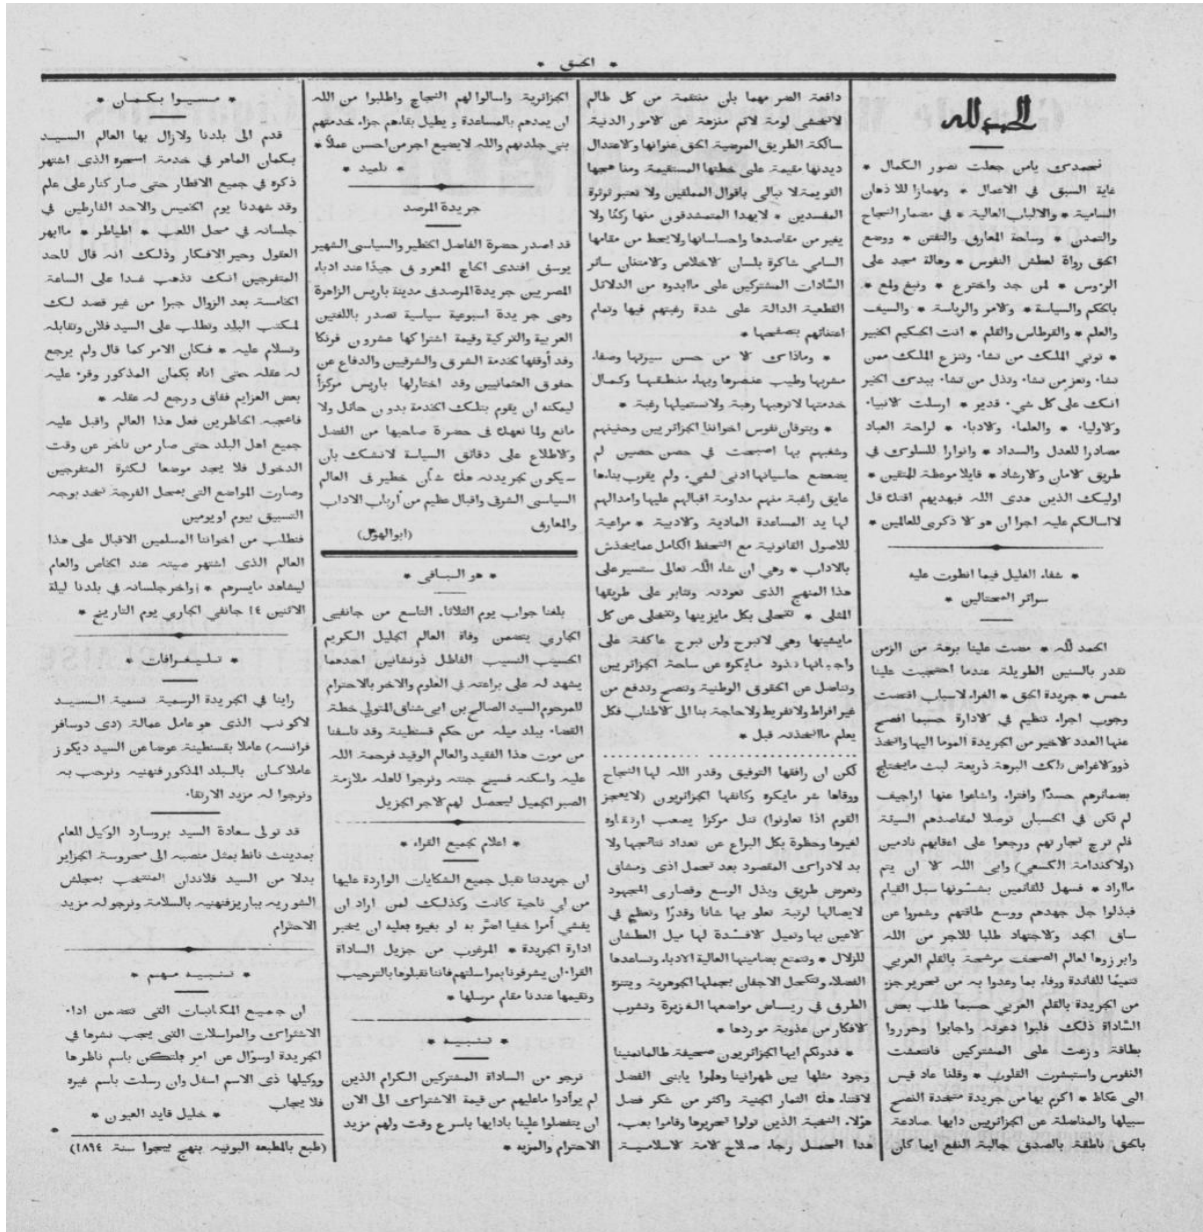 * الحق *
الحمد لله
نحمدك يامن جعلت تصور الكمال *
غاية السبق في الاعمال * ومهمازا للاذهان
السامية * والالباب العالية * في مضمار النجاح
والتمدن * وساحة المعارف والتفنن * ووضع
الحق رواة لعطش النفوس * وهالة مجد على
الروس * لمن جد واخترع * ونبغ ولمع *
بالحكم والسياسة * والامر والرياسة * والسيف
والعلم * والقرطاس والقلم * انت الحكيم الخبير
* توتي الملك من تشاء وتنزع الملك ممن
تشاء وتعز من تشاء وتذل من تشاء بيدك الخير
انك على كل شيء قدير * ارسلت الانبياء
والاولياء * والعلماء والادباء * لراحة العباد
مصادرا للعدل والسداد * وانوارا للسلوك في
طريق الامان والارشاد * قايلا موعظة للمتقين *
اوليك الذين هدى الله فبهديهم اقتدا قل
لااسالكم عليه اجرا ان هو الا ذكرى للعالمين *
* شفاء الغليل فيما انطوت عليه
سرائر المحتالين *
الحمد لله * مضت علينا برهة من الزمن
تقدر بالسنين الطويلة عندما احتجبت علينا
شمس * جريدة الحق * الغراء لاسباب اقتضت
وجوب اجراء تنظيم في الادارة حسبما افصح
عنها العدد الاخير من الجريدة الموما اليها واتخذ
ذوو الاغراض ذلك البرهة ذريعة لبث مايختلج
بضمائرهم حسدًا وافتراء واشاعوا عنها اراجيف
لم تكن في الحسبان توصلا لمقاصدهم السيئة
فلم ترج تجارتهم ورجعوا على اعقابهم نادمين
(ولا كندامة الكسعي) وابى الله الا ان يتم
مااراد * فسهل للقائمين بشئونها سبل القيام
فبذلوا جل جهدهم ووسع طاقتهم وشمروا عن
ساق الجد والاجتهاد طلبا للاجر من الله
وابرزوها لعالم الصحف مرشحة بالقلم العربي
تتميمًا للفائدة ووفاء بما وعدوا به من تحرير جزء
من الجريدة بالقلم العربي حسبما طلب بعض
السَّاداة ذلك فلبوا دعوته واجابوا وحرروا
بطاقة وزعت على المشتركين فانتعشت
النفوس واستبشرت القلوب * وقلنا عاد قيس
الى عكاظ * اكرم بها من جريدة متخذة النصح
سبيلها والمناضلة عن الجزائريين دابها صادعة
بالحق ناطقة بالصدق جالبة النفع ايما كان
دافعة الضر مهما بان منتقمة من كل ظالم
لاتخشى لومة لائم منزهة عن الامور الدنية
سالكة الطريق المرضية الحق عنوانها والاعتدال
ديدنها مقيمة على خطتها المستقيمة ومنافعها
القويمة لا تبالى باقوال المملقين ولا تعتبر ثرثرة
المفسدين * لايهدا المتمشدقون منها ركنًا ولا
يغير من مقاصدها واحساساتها ولا يحط من مقامها
السامي شاكرة بلسان الاخلاص والامتنان سائر
السَّادات المشتركين على ماابدوه من الدلائل
القطعية الدالة على شدة رغبتهم فيها وتمام
اعتنائهم بتصفحها *
* وماذاك الا من حسن سيرتها وصفاء
مشربها وطيب عنصرها وبهاء منطقها وكمال
خدمتها لاترهبها رهبة ولاتستميلها رغبة *
* وبتوقان نفوس اخواننا الجزائريين وحنينهم
وشغبهم بها اصبحت في حصن حصين لم
يضعضع حاسياتها ادنى لشيء ولم يقرب بناءها
عايق راغبة منهم مداومة اقبالهم عليها وامدالهم
لها يد المساعدة المادية والادبية * مراعية
للاصول القانونية مع التحفظ الكامل عمايخدش
بالاداب * وهي ان شاء الله تعالى ستسير على
هذا المنهج الذى تعودته وتثابر على طريقها
المثلى * تتحلى بكل مايزينها وتتخلى عن كل
مايشينها وهي لاتبرح ولن تبرح عاكفة على
واجباتها تذود مايكره عن ساحة الجزائريين
وتناضل عن الحقوق الوطنية وتنصح وتدفع من
غير افراط ولاتفريط ولاحاجة بنا الى الاطناب فكل
يعلم مااتخذته قبل *
لكن ان رافقها التوفيق وقدر الله لها النجاح
ووقاها شر مايكره وكانفها الجزائريون (لايعجز
القوم اذا تعاونوا) تنل مركزا يصعب ارتقاوه
لغيرها وحظوة يكل اليراع عن تعداد نتائجها ولا
بد لادراك المقصود بعد تحمل اذى ومشاق
وتعرض طريق وبذل الوسع وقصارى المجهود
لايصالها لرتبة تعلو بها شانا وقدرًا وتعظم في
الاعين بها وتميل الافئدة لها ميل العطشان
للزلال * وتتمتع بمضامينها العالية الادباء وتساعدها
الفضلاء وتكتحل الاجفان بجملها الجوهرية ويتنزه
الطرف في رياض مواضعها الغزيرة وتشرب
الافكار من عذوبة موردها *
* فدونكم ايها الجزائريون صحيفة طالماتمنينا
وجود مثلها بين ظهرانينا وهلموا يابنى الفضل
لاقتناء هذه الثمار الجنية واكثر من شكر فضل
هؤلاء النخبة الذين تولوا تحريرها وقاموا بعبء
هذا الحمل رجاء صلاح الامة الاسلامية
الجزائرية واسالوا لهم النجاح واطلبوا من الله
ان يمدهم بالمساعدة ويطيل بقاءهم جزاء خدمتهم
بني جلدتهم والله لايضيع اجر من احسن عملاً *
* تلميذ *
جريدة المرصد
قد اصدر حضرة الفاضل الخطير والسياسى الشهير
يوسف افندى الحاج المعروف جيدًا عند ادباء
المصريين جريدة المرصد في مدينة باريس الزاهرة
وهى جريدة اسبوعية سياسية تصدر باللغتين
العربية والتركية وقيمة اشتراكها عشرون فرنكا
وقد أوقفها لخدمة الشرق والشرقيين والدفاع عن
حقوق العثمانيين وقد اختار لها باريس مركزاً
ليمكنه ان يقوم بتلك الخدمة بدون حائل ولا
مانع ولما نعهدك في حضرة صاحبها من الفضل
والاطلاع على دقائق السياسة لانشك بان
سيكون لجريدته هذه شأن خطير في العالم
السياسى الشرقي واقبال عظيم من أرباب الاداب
والمعارف
(ابوالهول)
* هو الباقى *
بلغنا جواب يوم الثلاثاء التاسع من جانفيى
الجارى يتضمن وفاة العالم الجليل الكريم
الحسيب النسيب الفاظل ذونشانين احدهما
يشهد له على براعته في العلوم والاخر بالاحترام
للمرحوم السيد الصالح بن ابى شناق المتولي خطة
القضاء ببلد ميله من حكم قسنطينة وقد تاسفنا
من موت هذا الفقيد والعالم الوقيد فرحمة الله
عليه واسكنه فسيح جنته ونرجوا لاهله ملازمة
الصبر الجميل ليحصل لهم الاجر الجزيل
* اعلام لجميع القراء *
ان جريدتنا تقبل جميع الشكايات الواردة عليها
من اي ناحية كانت وكذلك لمن اراد ان
يفشي أمرا خفيا اضرَّ به او بغيره فعليه ان يخبر
ادارة الجريدة * المرغوب من جزيل السَّاداة
القراء ان يشرفونا بمراسلتهم فاننا نقبلوها بالترحيب
ونقيمها عندنا مقام مرسلها *
* تنبيه *
نرجو من الساداة المشتركين الكرام الذين
لم يوأدوا ماعليهم من قيمة الاشتراك الى الان
ان يتفضلوا علينا بادايها باسرع وقت ولهم مزيد
الاحترام والمزيه *
* سيوا بكمان *
قدم الى بلدنا ولازال بها العالم السيد
بكمان الماهر في خدمة السحره الذى اشتهر
ذكره في جميع الاقطار حتى صار كنار على علم
وقد شهدنا يوم الخميس والاحد الفارطين في
جلساته في محل اللعب * اطياطر * ماابهر
العقول وحير الافكار وذلك انه قال لاحد
المتفرجين انك تذهب غدا على الساعة
الخامسة بعد الزوال جبرا من غير قصد لك
لمكتب البلد وتطلب على السيد فلان وتقابله
وتسلام عليه * فكان الامر كما قال ولم يرجع
له عقله حتى اتاه بكمان المذكور وقرء عليه
بعض العزايم ففاق ورجع له عقله *
فاعجبه الحاظرين فعل هذا العالم واقبل عليه
جميع اهل البلد حتى صار من تاخر عن وقت
الدخول فلا يجد موضعا لكثرة المتفرجين
وصارت المواضع التى بمحل الفرجة تتخذ بوجه
التسبيق بيوم اويومين
فنطلب من اخواننا المسلمين الاقبال على هذا
العالم الذى اشتهر صيته عند الخاص والعام
ليشاهد مايسرهم * واخر جلساته في بلدنا ليلة
الاثنين ١٤ جانفي الجاري يوم التاريخ *
* تليغرافات *
راينا في الجريدة الرسمية تسمية السيد
لاكونب الذى هو عامل عمالة (دى دوسافر
فرانسه) عاملا بقسنطينة عوضا عن السيد ديكوز
عاملا كان بالبلد المذكور فنهنيه ونرحب به
ونرجوا له مزيد الارتقاء
قد تولى سعادة السيد بروسارد الوكيل العام
بمدينة نانط بمثل منصبه الى محروسة الجزاير
بدلا من السيد فلاندان المنتخب بمجلش
الشوريه بباريز فنهنيه بالسلامة ونرجو له مزيد
الاحترام
* تنبيه مهم *
ان جميع المكاتبات التى تتضمن اداء
الاشتراك والمراسلات التى يجب نشرها في
الجريدة اوسؤال عن امر فلتكن باسم ناظرها
ووكيلها ذى الاسم اسفل وان رسلت باسم غيره
فلا يجاب
* خليل قايد العيون *
(طبع بالطبعه البونيه بنهج بيجوا سنة ١٨٩٤)